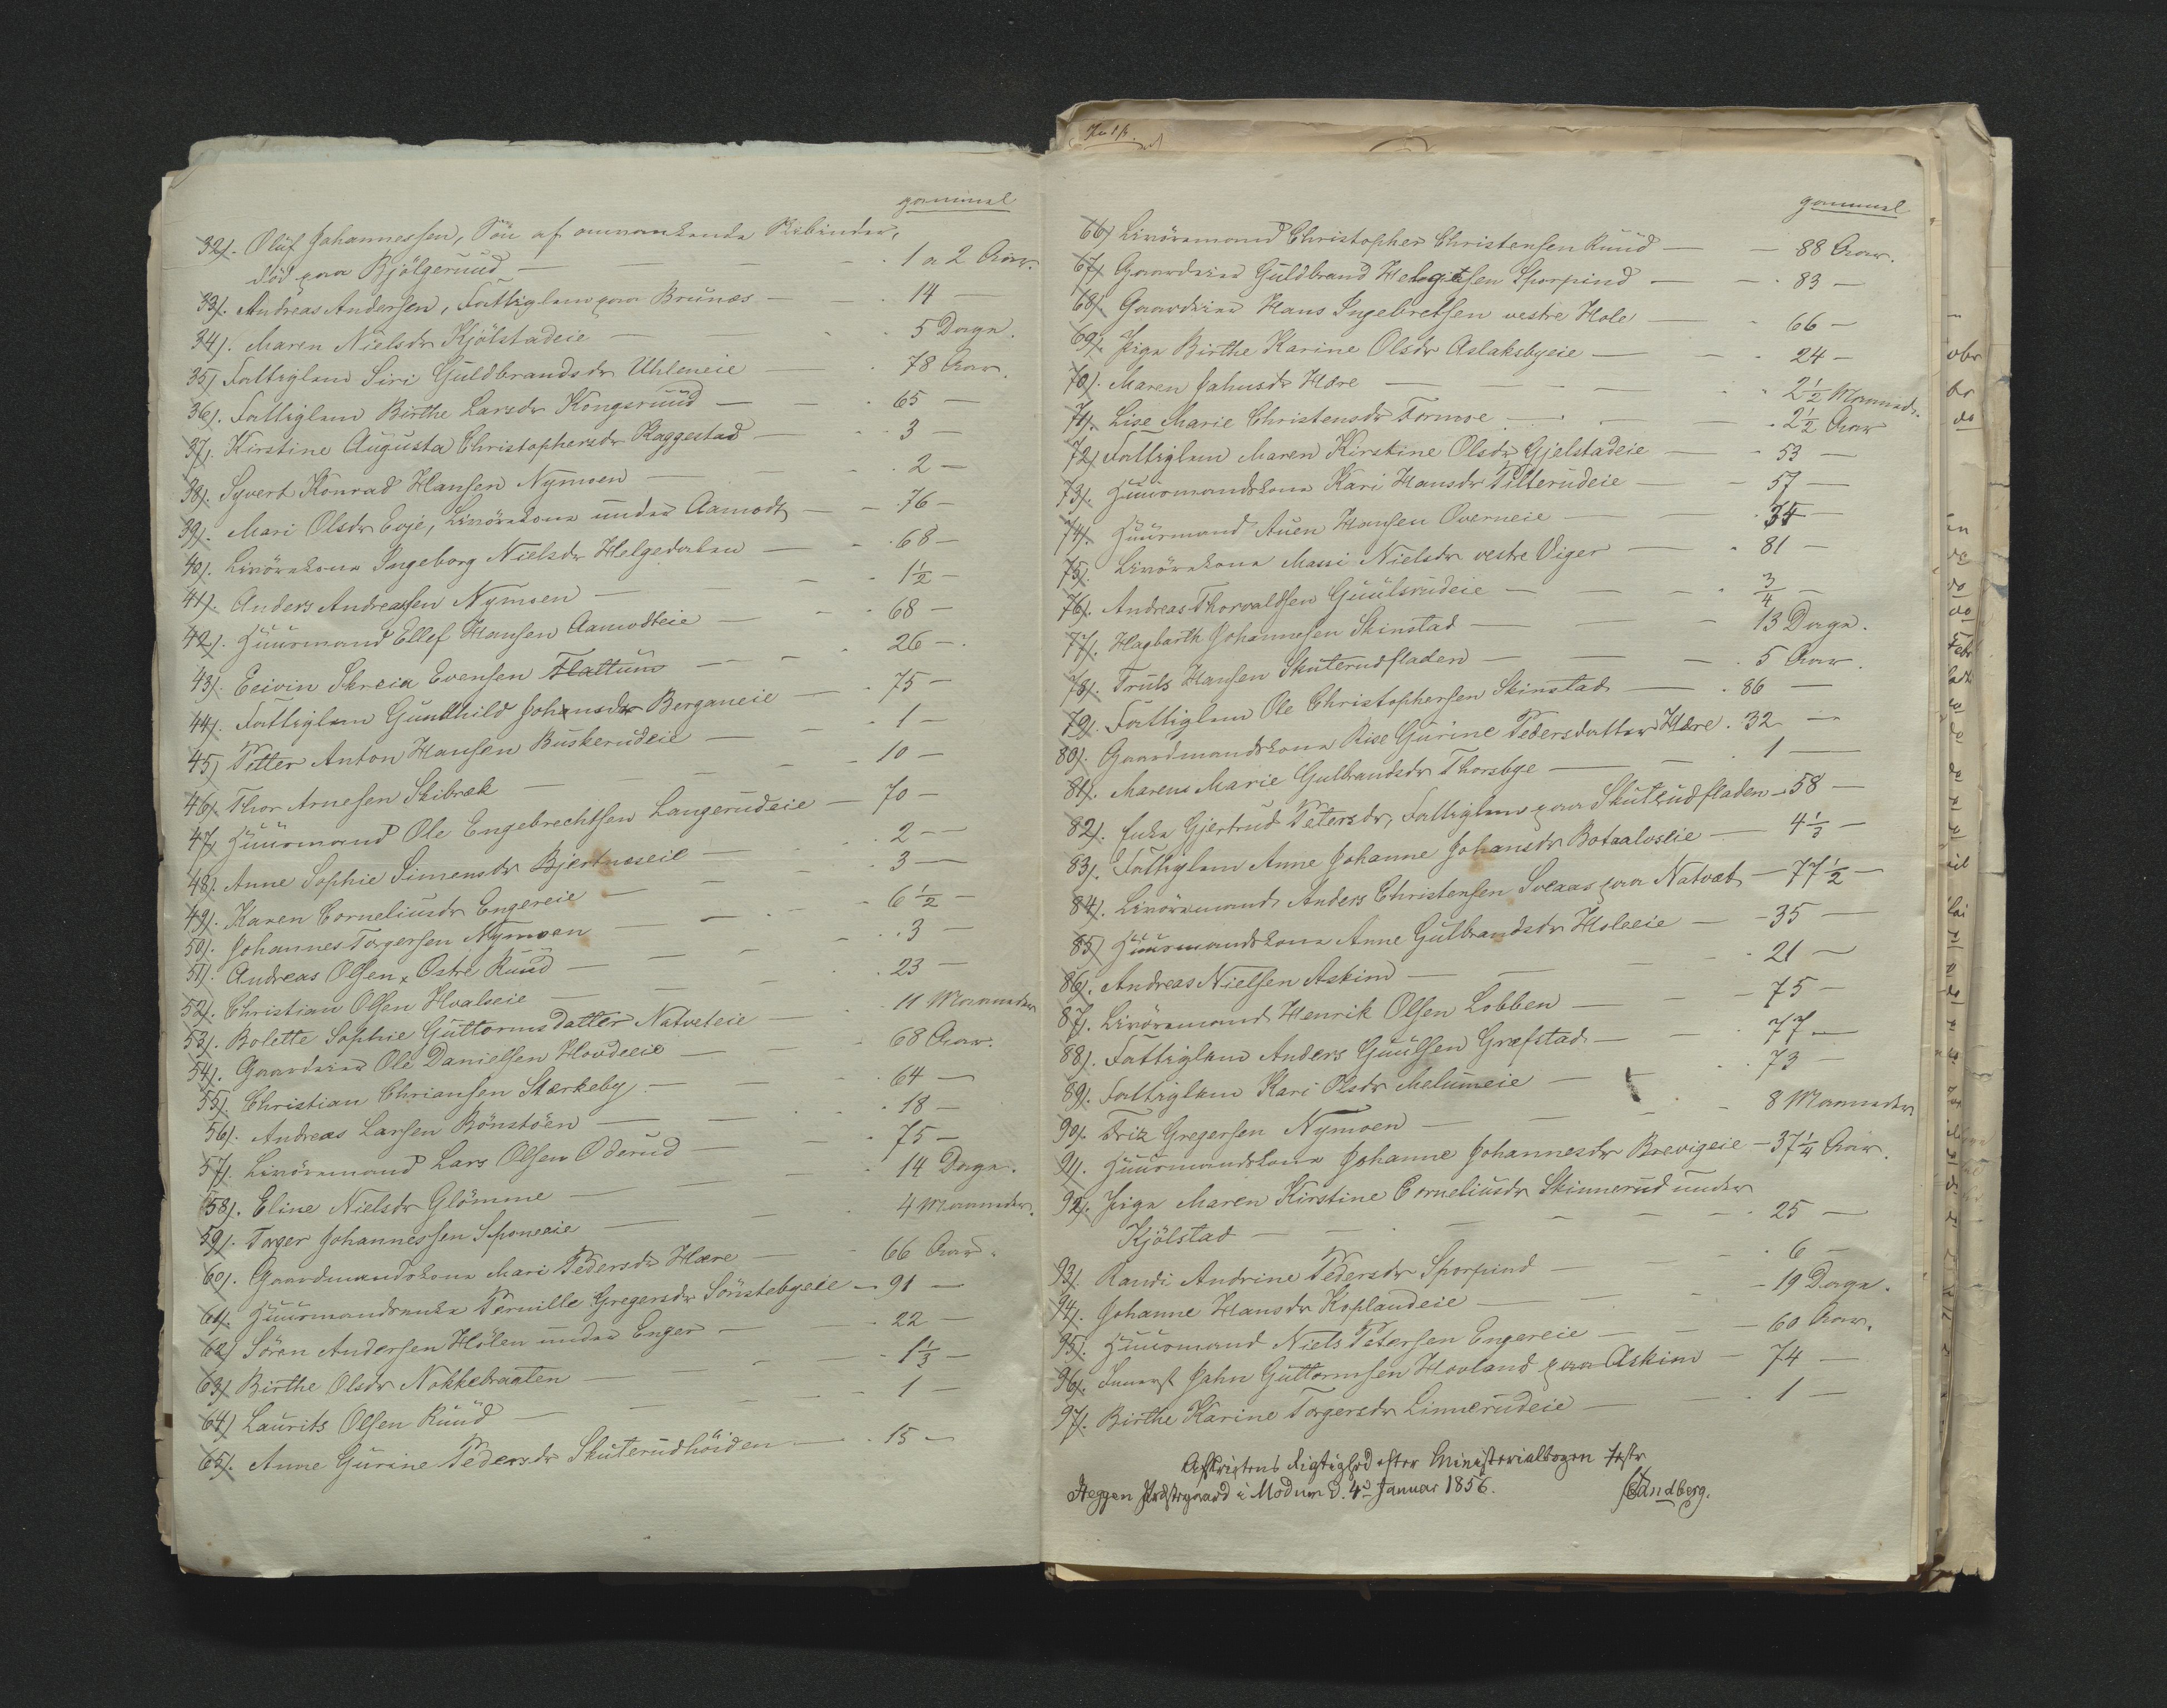 gammel
32/. Oluf Johannessen, Søn af omvankende Bibinder,
død paa Bjölgerud — 1 a 2 Aar.
33/. Andreas Andersen, Fattiglem paa Brunæs — 14 —
34/. Maren Nielsdr Kjölstadeie — 5 Dage.
35/ Fattiglem Siri Guldbrandsdr Uhleneie — 78 Aar.
36/. Fattiglem Birthe Larsdr Kongsruud — 65 —
37/. Kirstine Augusta Christophersdr Raggestad — 3 —
38/. Syvert Konrad Hansen Nymoen — 2 —
39/. Mari Olsdr Evje, Livörekone under Aamodt — 76 —
40/. Livörekone Ingeborg Nielsdr Helgedalen — 68 —
41/. Anders Andreassen Nymoen — 1½ —
42/. Huusmand Ellef Hansen Aamodteie — 68 —
43/. Eeivin Skreia Evensen Flattum — 26 —
44/. Fattiglem Gunthild Johnsdr Berganeie — 75 —
45/ Petter Anton Hansen Buskerudeie — 1 —
46/. Thor Arnesen Skibræk — 10 —
47/ Huusmand Ole Engebrechtsen Langerudeie — 70 —
48/. Anne Sophie Simensdr Bjertnæseie — 2 —
49/. Karen Corneliusdr Engereie — 3 —
50/. Johannes Torgersen Nymoen — 6½ —
51/. Andreas Olsen Ostre Ruud — 3 —
52/. Christian Olsen Hvalseie — 23 —
53/. Bolette Sophie Guttormsdatter Natveteie — 11 Maaneder
54/. Gaardeier Ole Danielsen Hovdeeie — 68 Aar.
55/. Christian Chriansen Stærkeby — 64 —
56/. Andreas Larsen Bönstöen — 18 —
57/. Livöremand Lars Olsen Oderud — 75 —
58/. Eline Nielsdr Glömme — 14 Dage.
59/. Torger Johannessen Sponeeie — 4 Maaneder.
60/. Gaardmandskone Mari Pedersdr Hære — 66 Aar.
61/. Huusmandsenke Pernille Gregersdr Sönstebyeie — 91 —
62/ Sören Andersen Hölen under Enger — 22 —
63/ Birthe Olsdr Nokkebraaten — 1⅓ —
64/ Laurits Olsen Ruud — 1 —
65/. Anne Gurine Pedersdr Skuterudhöiden — 15 —
gammel
66/ Livöremand Christopher Christensen Ruud — 88 Aar.
67/ Gaardeier Guldbrand Helgesen Sporpind — 83 —
68/. Gaardeier Hans Ingebretsen vestre Hole — 66 —
69/. Pige Birthe Karine Olsdr Aslaksbyeie — 24 —
70/. Maren Jahnsdr Hære — 2½ Maaneder.
71/. Lise Marie Christensdr Formoe — 2½ Aar
72/ Fattiglem Maren Kirstine Olsdr Gjelstadeie — 53 —
73/. Huusmandskone Kari Hansdr Tillerudeie — 57 —
74/. Huusmand Auen Hansen Overneie — 34 —
75/. Livörekone Massi Nielsdr vestre Viger — 81 —
76/. Andreas Thorvaldsen Guulsrudeie — ¾ —
77/. Hagbarth Johannesen Skinstad — 13 Dage.
78/. Truls Hansen Skuterudfladen — 5 Aar.
79/. Fattiglem Ole Christophersen Skinstad — 86 —
80/. Gaardmandskone Rise Gurine Pedersdatter Hære. 32 —
81/. Maren Marie Gulbrandsdr Thorsbye — 1 —
82/. Enke Gjertrud Petersdr, Fattiglem paa Skuterudfladen — 58 —
83/. Fattiglem Anne Johanne Johansdr Botaaloseie — 4⅓ —
84/. Livöremand Anders Christensen Sveaas paa Natvet — 77½ —
85/ Huusmandskone Anne Gulbrandsdr Holeeie — 35 —
86/. Andreas Nielsen Askim — 21 —
87/. Livöremand Henrik Olsen Lobben — 75 —
88/. Fattiglem Anders Guulsen Græfstad — 77 —
89/. Fattiglem Kari Olsdr Melumeie — 73 —
90/. Fritz Gregersen Nymoen — 8 Maaneder
91/. Huusmandskone Johanne Johannesdr Brevigeie — 37¼ Aar.
92/. Pige Maren Kirstine Corneliusdr Skinnerud under
Kjölstad — 25 —
93/. Randi Andrine Pedersdr Sporpind — 6 —
94/. Johanne Hansdr Koplandeie — 19 Dage.
95/. Huusmand Niels Petersen Engereie — 60 Aar.
96/. Inderst Jahn Guttormsen Hovland paa Askim — 74 —
97/. Birthe Karine Torgersdr Linnerudeie — 1 —
Afskriftens Rigtighed efter Ministerialbogen
Heggen Præstegaard i Modum d. 4d Januar 1856. Sandberg.